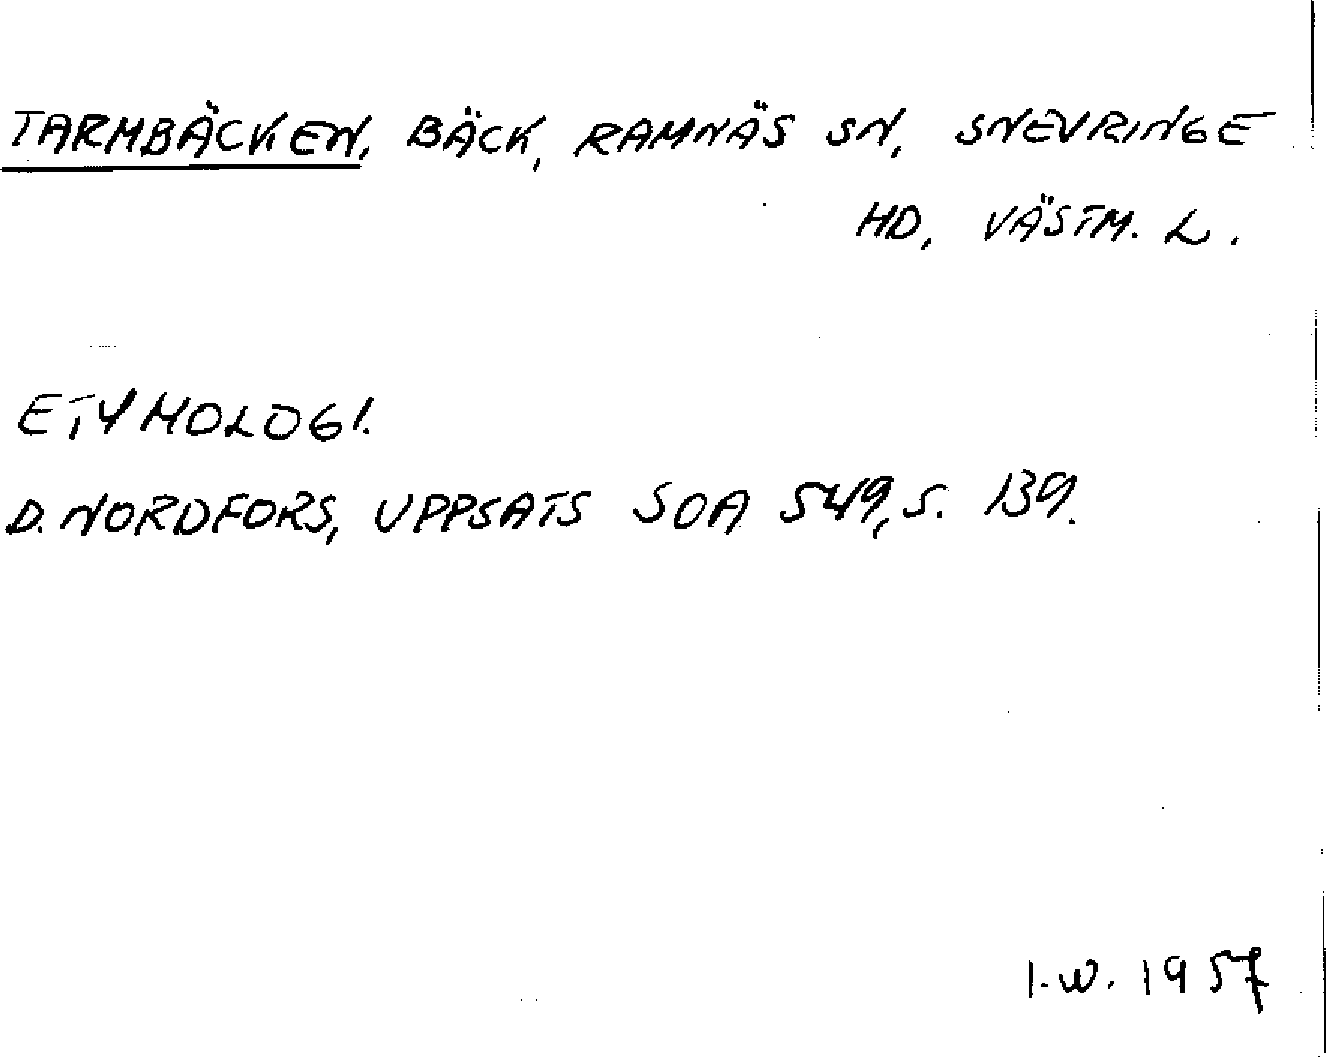 TARMBÄCKEN, BÄCK, RAMNÄS SN, SNEVRINGE
HD, VÄSTM. L.
ETYMOLOGI.
D. NORDFORS, UPPSATS SOA 549, S. 139.
I.W. 1957